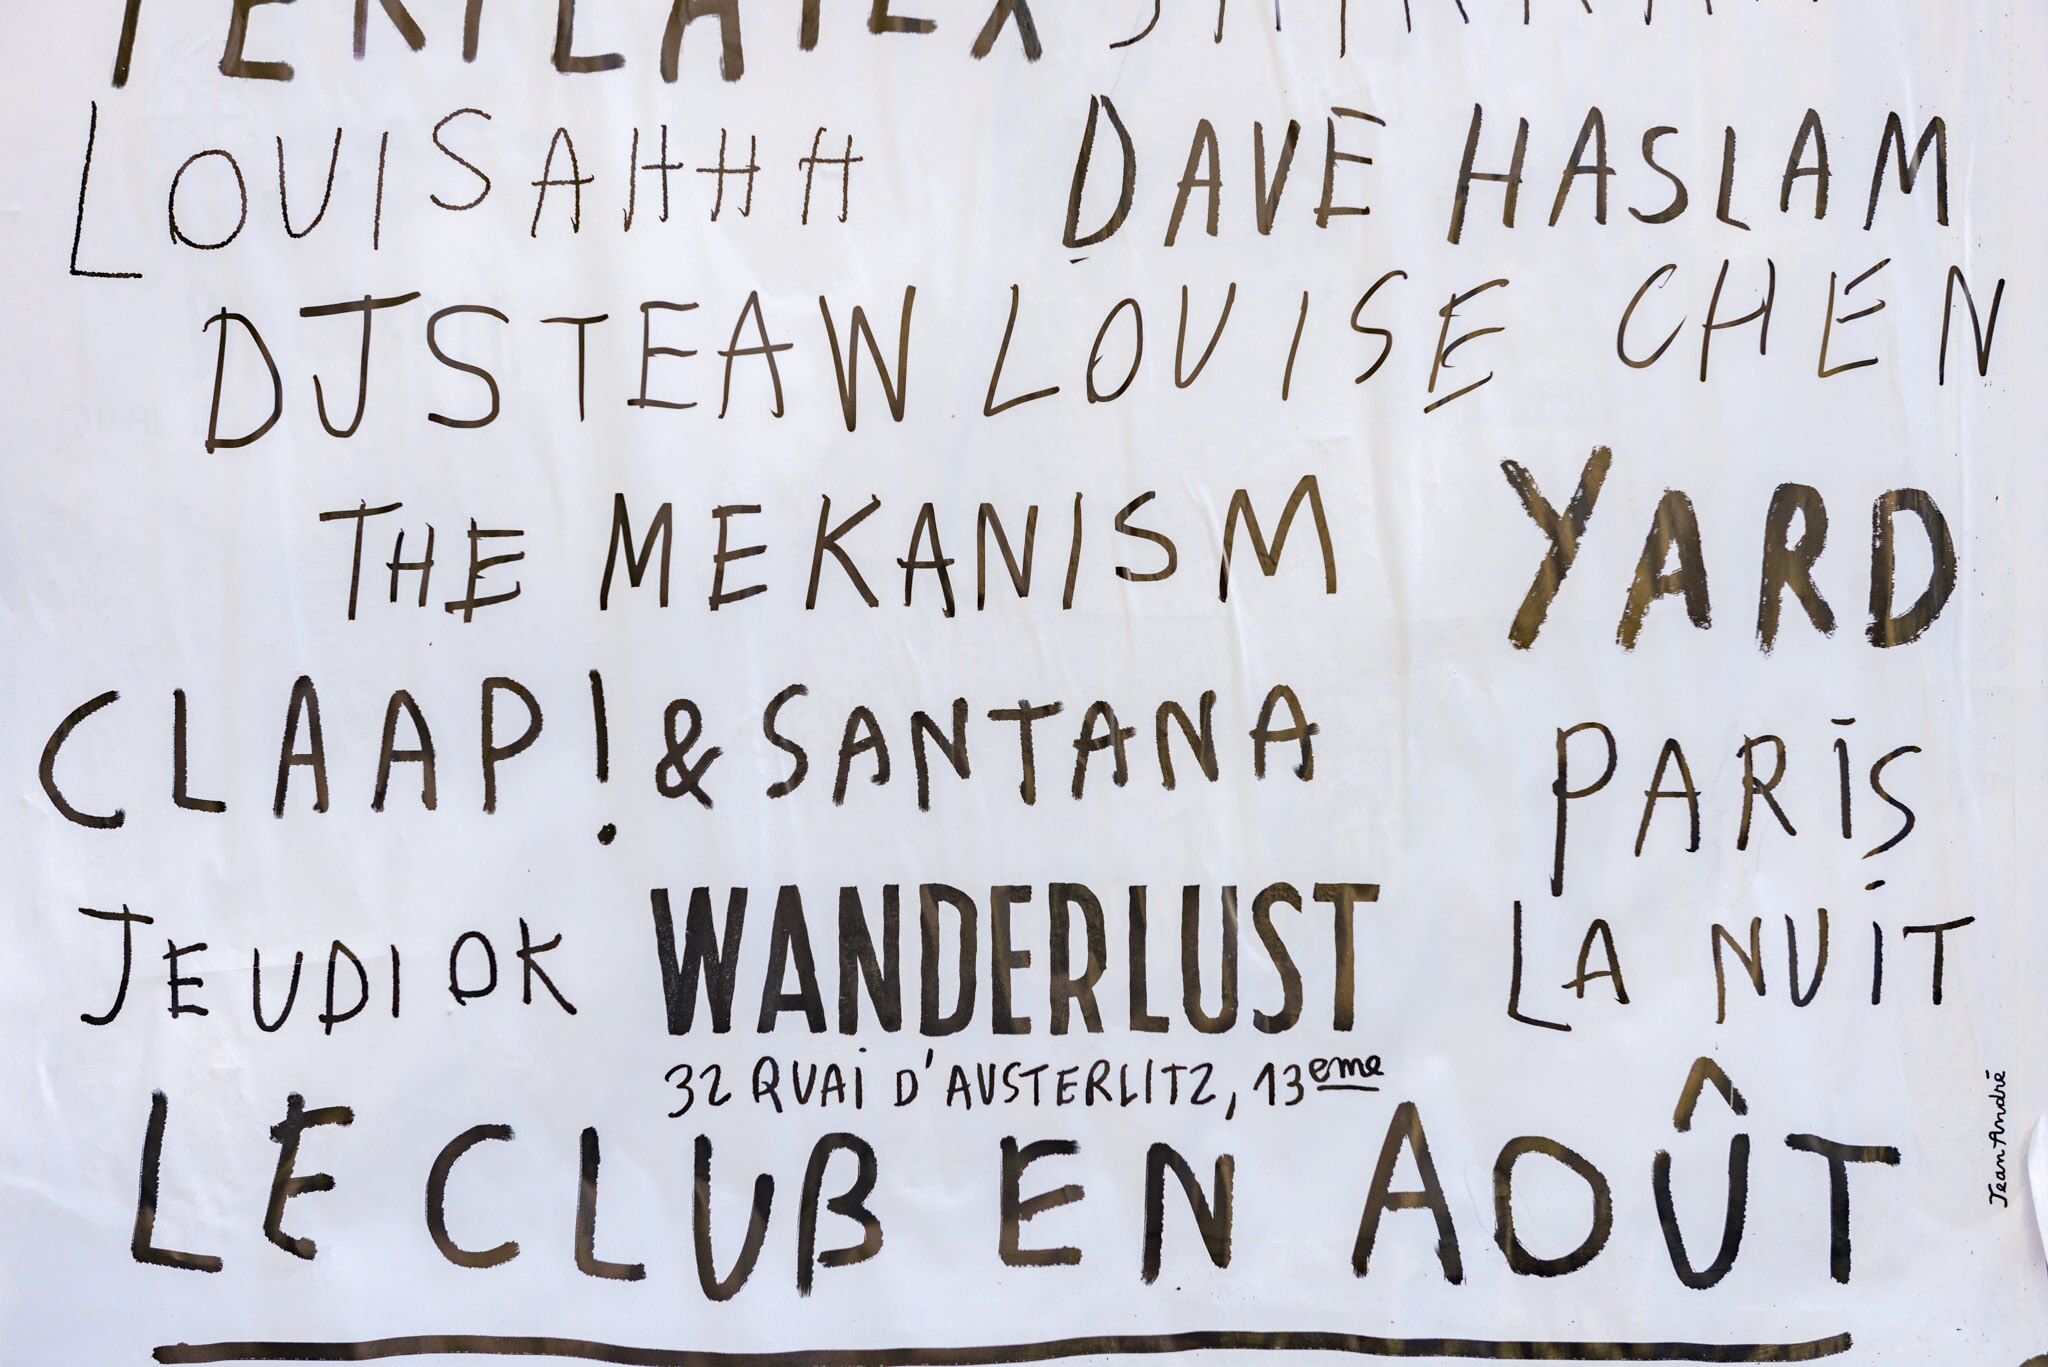 LOUISAHHH DAVE HASLAM
DJ STEAW LOUISE CHEN
THE MEKANISM YARD
CLAAP! & SANTANA PARIS
JEUDI OK WANDERLUST LA NUIT
32 QUAI D'AUSTERLITZ, 13eme
LE CLUB EN AOÛT
Jean André